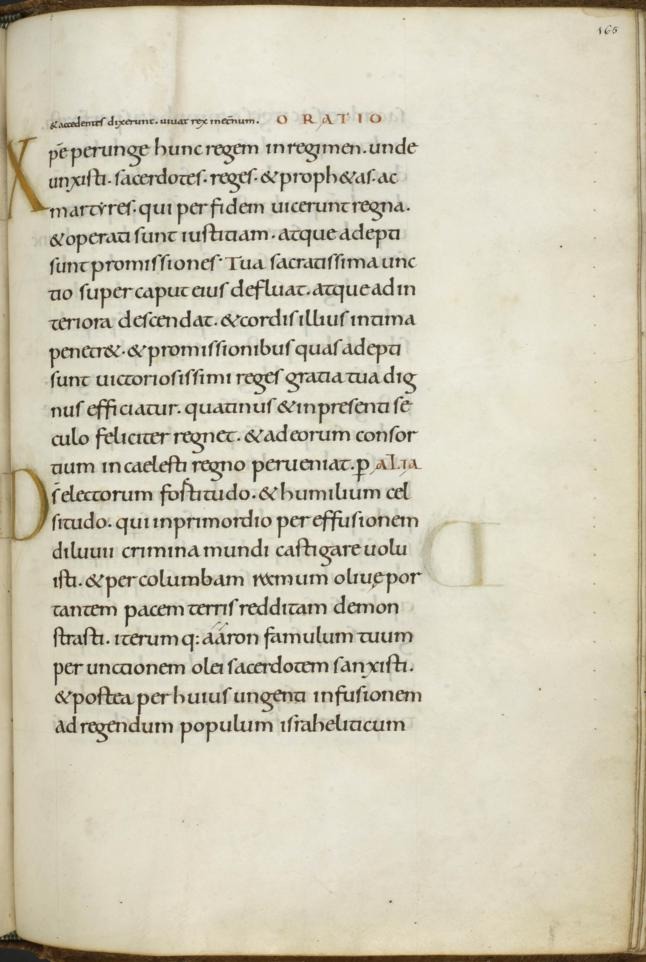 165
&accedentes dixerunt. uiuat rex inet̄num. ORATIO
Xp̄e perunge hunc regem inregimen. unde
unxisti. sacerdotes. reges. &proph&as. ac
martẏres. qui per fidem uicerunt regna.
&operati sunt iustitiam. atque adepti
sunt promissiones. Tua sacratissima unc
tio super caput eius defluat. atque ad in
teriora descendat. &cordis illius intima
penetr&. &promissionibus quas adepti
sunt uictoriosissimi reges gratia tua dig
nus efficiatur. quatinus &inpresenti se
culo feliciter regnet. &adeorum consor
tium incaelesti regno perueniat. ꝑ ALIA
D̄s electorum fortitudo. &humilium cel
situdo. qui inprimordio per effusionem
diluuii crimina mundi castigare uolu
isti. &per columbam ramum oliuę por
tantem pacem terris redditam demon
strasti. iterumq: aáron famulum tuum
per unctionem olei sacerdotem sanxisti.
&postea per huius ungenti infusionem
ad regendum populum israheliticum